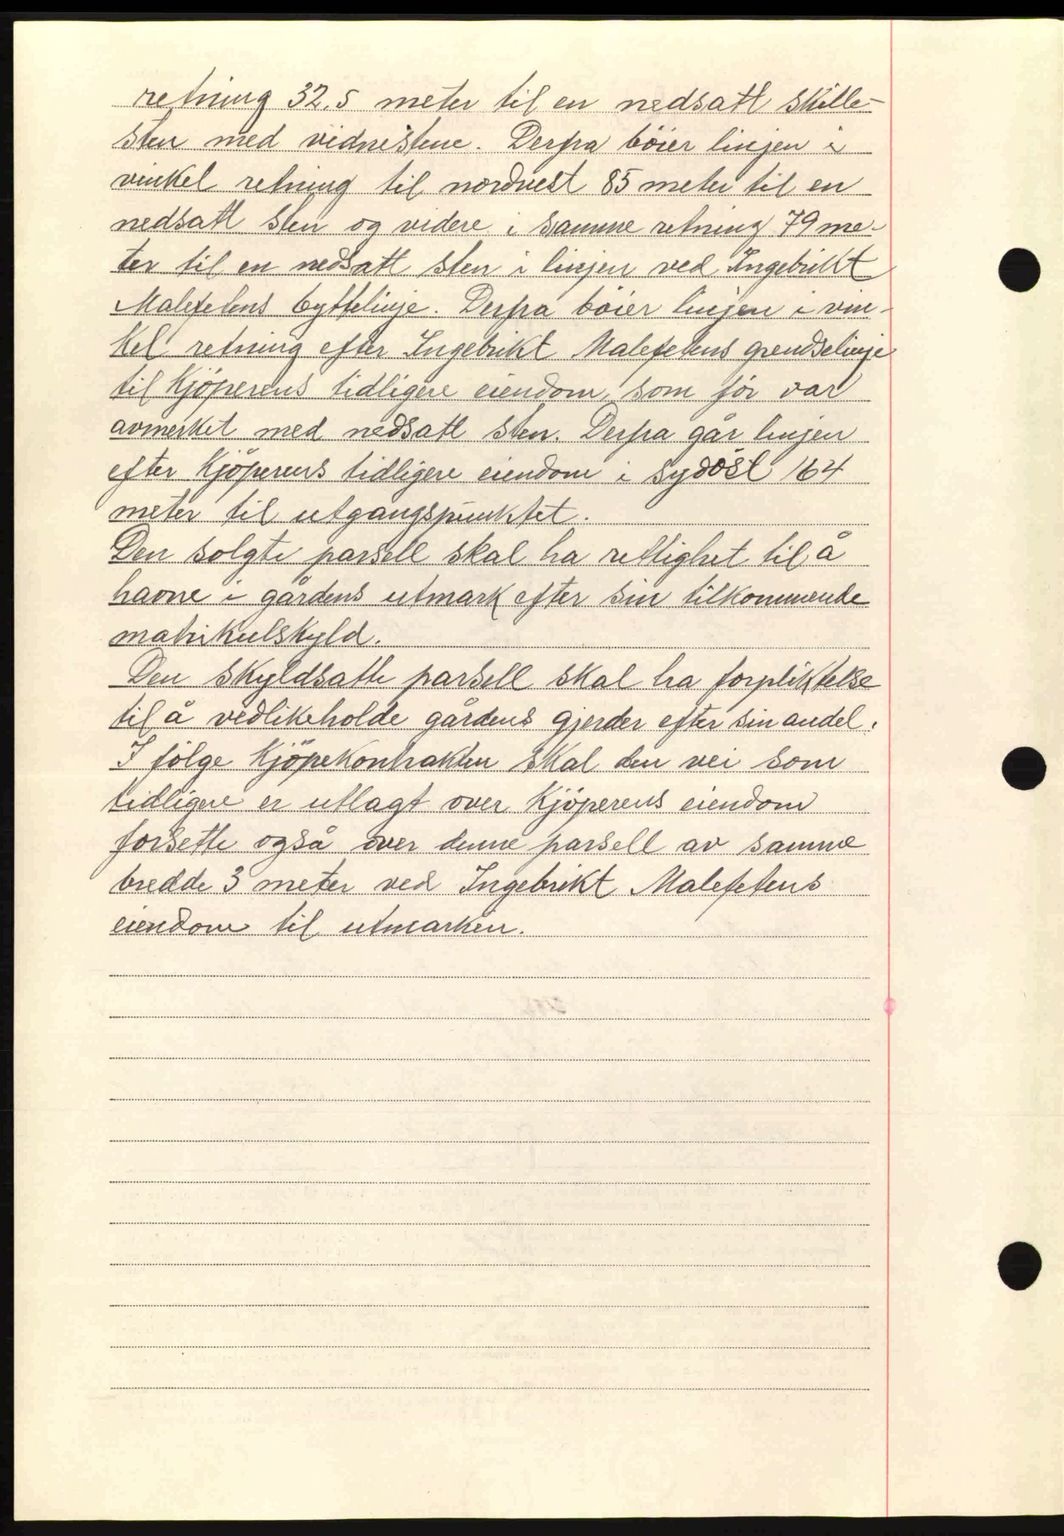 retning 32.5 meter til en nedsatt skille-
sten med vidnestene. Derfra böier linjen i
vinkel retning til nordvest 85 meter til en
nedsatt sten og videre i samme retning 79 me-
ter til en nedsatt sten i linjen ved Ingebrikt
Malefetens byttelinje. Derfra böier linjen i vin-
kel retning efter Ingebrikt Malefetens grendselinje
til Kjöperens tidligere eiendom, som för var
avmerket med nedsatt sten. Derfra går linjen
efter Kjöperens tidligere eiendom i sydöst 164
meter til utgangspunktet.
Den solgte parsell skal ha rettighet til å
havne i gårdens utmark efter sin tilkommende
matrikulskyld.
Den skyldsatte parsell skal ha forpliktelse
til å vedlikeholde gårdens gjerder efter sin andel.
I fölge Kjöpekontrakten skal den vei som
tidligere er utlagt over Kjöperens eiendom
forsette også över denne parsell av samme
bredde 3 meter ved Ingebrikt Malefetens
eiendom til utmarken.